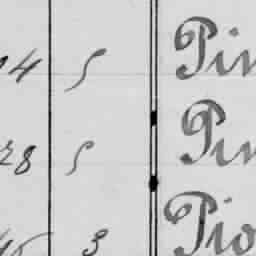 14 5 Pin
28 5 Pin
45 3 Pio